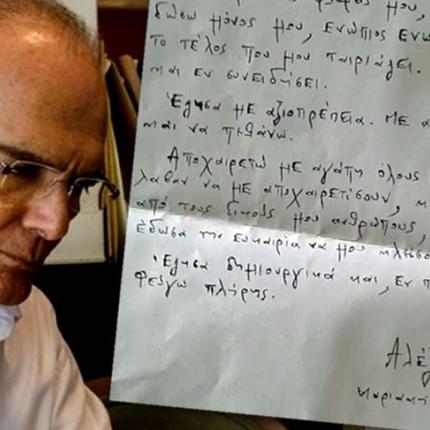 μου,
δώσω μόνος μου, ενώπιος ενω
το τέλος που μου ταιριάζει.
και εν συνειδήσει.
Έζησα με αξιοπρέπεια. Με α
και να πεθάνω.
Αποχαιρετώ με αγάπη όλους
λαβαν να με αποχαιρετίσουν,
από τους δικούς μου ανθρώπους,
έδωσα την ευκαιρία να μου
Έζησα δημιουργικά και, εν π
Φεύγω πλήρης.
Αλέ
Κυριακή